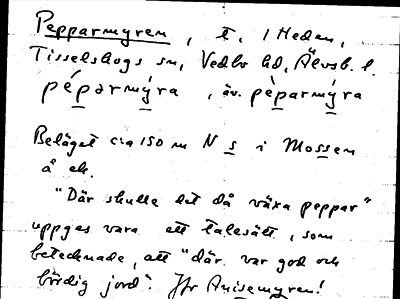 Pepparmyren, t. 1 Heden,
Tisselskogs sn, Vedbo hd, Älvsb. l.
péparmýra, äv. pèparmýra
Beläget c:a 150 m N s i Mossen
å ek.
"Där skulle det då växa peppar"
uppges vara ett talesätt, som
betecknade, att "där var god och
bördig jord". Jfr Anisemyren!